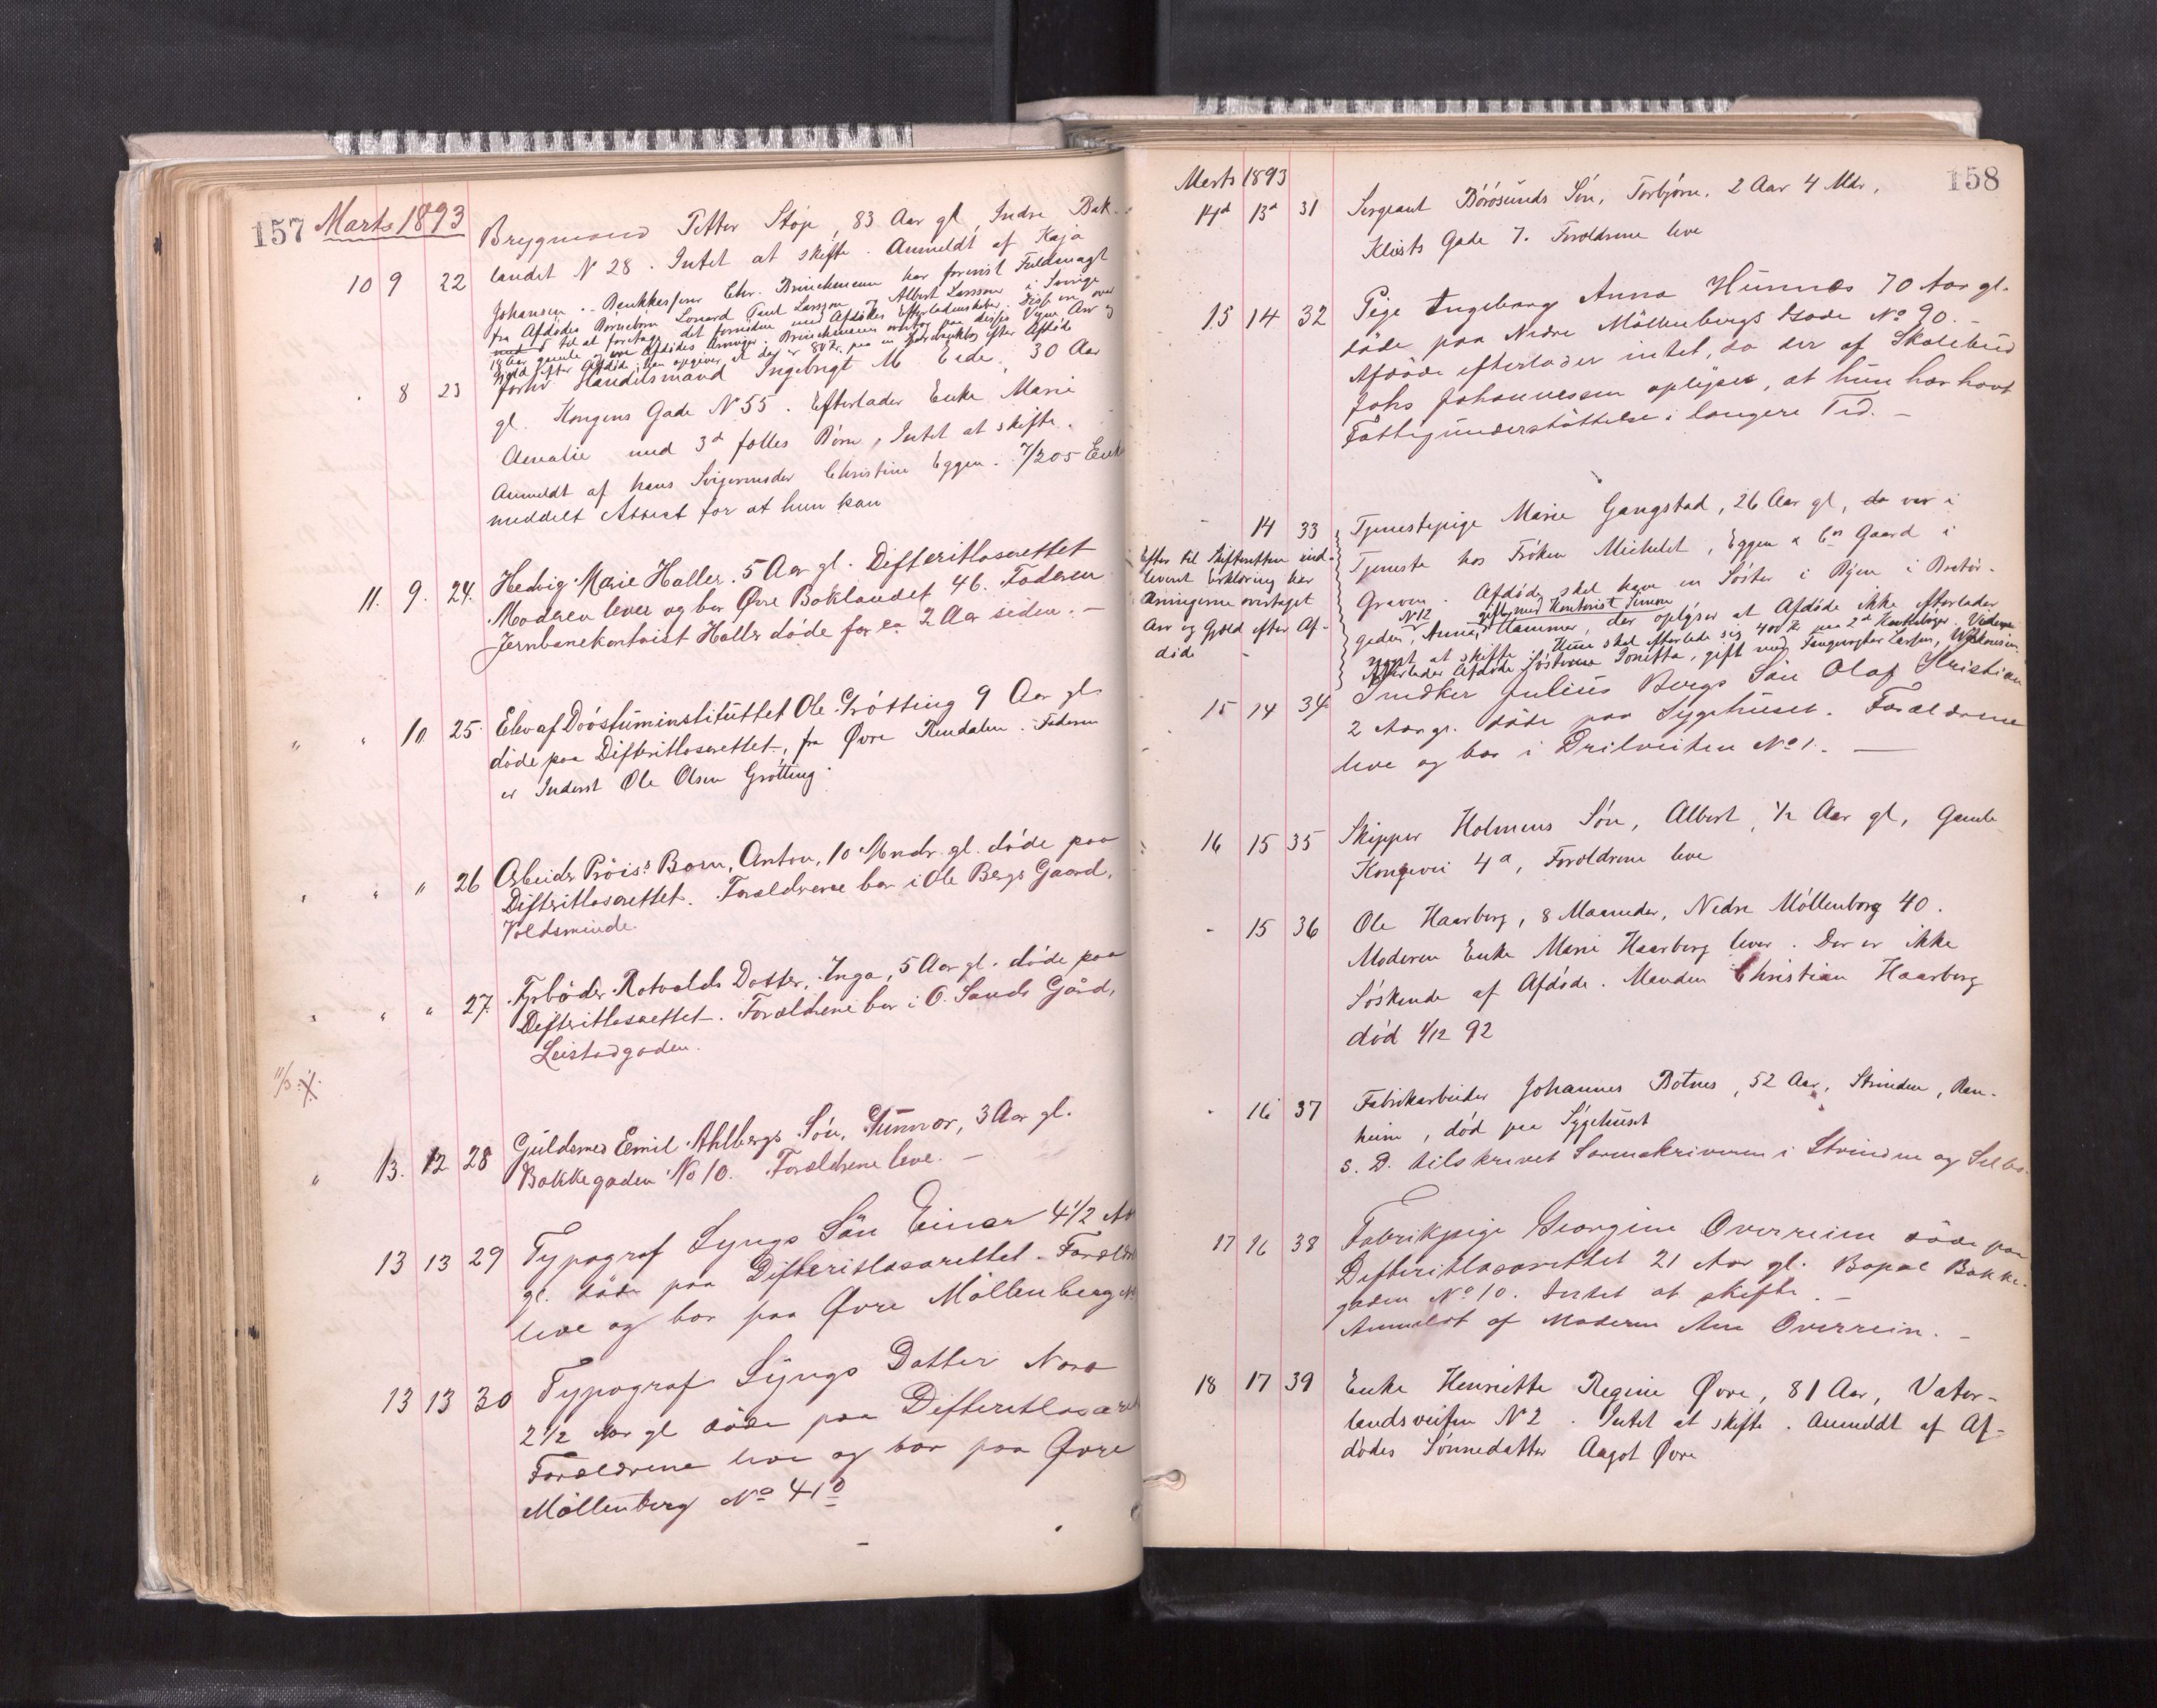 157 Marts 1893
Brygmand Petter Støp, 83 Aar gl, Indre Bak-
10 9 22 landet N 28. Intet at skifte. Anmeldt af Kaja
Johansen .. Bankkasserer Chr. Brinchmann har forevist Fuldmagt
fra Afdødes Børnebørn Lonard Paul Larsson og Albert Larsson i Sverige
til at foretage det fornødne med Afdødes Efterladenskaber. Disse ere over
18 Aar gamle og ere Afdødes Arvinger. Brinchmann overtog paa disses Vegne Arv og
Gjæld efter Afdøde; han opgiver at der er 80 Kr. paa en efter Afdøde
" 8 23 forhv Handelsmand Ingebrigt M Eide, 30 Aar
gl. Kongens Gade N 55. Efterlader Enke Marie
Amalie med 3d fælles Børn, Intet at skifte.
Anmeldt af hans Svigermoder Christine Eggen. 7/2 05 Enken
meddelt Attest for at hun kan
11. 9. 24. Hedvig Marie Haller. 5 Aar gl. Difteritlasarettet
Moderen lever og bor Øvre Baklandet 46. Faderen
Jernbanekontorist Haller døde for ca 2 Aar siden. -
" " 10 25. Elev af Døvstuminstituttet Ole Grøtting 9 Aar gl
døde paa Difteritlasarettet, fra Øvre Rendalen. Faderen
er Inderst Ole Olsen Grøtting.
" " " 26 Arbeider Prøis's Barn, Anton, 10 Mndr. gl. døde paa
Difteritlasarettet. Forældrene bor i Ole Bergs Gaard,
Voldsminde.
" " " 27. Fyrbøder Rotvolds Datter, Inga, 5 Aar gl. døde paa
Difteritlasarettet. Forældrene bor i O. Sands Gård,
Leistadgaden.
11/3
" 13. 12 28 Guldsmed Emil Ahlbergs Søn, Gunnar, 3 Aar gl.
Bakkegaden No 10. Forældrene leve. -
13 13 29 Typograf Lyngs Sön Einar 4 1/2 Aar
gl. døde paa Difteritlasarettet. Forældrene
leve og bor paa Øvre Möllenberg No
13 13 30 Typograf Lyngs Datter Nora
2 1/2 Aar gl döde paa Difteritlasarettet
Forældrene leve og bor paa Øvre
Möllenberg No 41 b
158
Marts 1893
14d 13d 31 Sergeant Börösunds Søn, Torbjørn, 2 Aar 4 Mdr,
Kliksts Gade 7. Forældrene leve
15 14 32 Pige Ingeborg Anna Hunnæs 70 Aar gl.
döde paa Nedre Möllenbergs Gade No 90. -
Afdöde efterlader intet, da der af Skolebud
Johs Johannessen oplyses, at hun har havt
Fattigunderstöttelse i længere Tid. -
- 14 33 Tjenestepige Marie Gangstad, 26 Aar gl, da var i
Tjeneste hos Frøken Michelet, Eggen & Co Gaard i
Graven. Afdøde skal have en Søster i Byen i Bratør-
gaden No 12, Anna, gift med Kontorist Simon Hammer, der oplyser at Afdøde ikke efterlader
noget at skifte. Hun skal efterlade sig 400 Kr paa 2d Kontrabøger. Videre
efterlader Afdøde Søsteren Jonetta, gift med Fangevogter Larsen, Wiskonsin.
Efter til Skifteretten ind-
leveret Erklæring har
Arvingerne overtaget
Arv og Gjæld efter Af-
døde
15 14 34 Snedker Julius Bergs Sön Olaf Kristian
2 Aar gl. döde paa Sygehuset. Forældrene
leve og bor i Drilveiten No 1. -
16 15 35 Skipper Holmens Søn, Albert, 1/2 Aar gl, Gamle
Kongevei 4a, Forældrene leve
- 15 36 Ole Haarberg, 8 Maaneder, Nedre Møllenberg 40.
Moderen Enke Marie Haarberg lever. Der er ikke
Søskende af Afdøde. Manden Christian Haarberg
død 1/12 92
- 16 37 Fabrikarbeider Johannes Botnes, 52 Aar, Strinden, Ran-
heim, død paa Sygehuset
S. D. tilskrevet Sorenskriveren i Strinden og Selbu.
17 16 38 Fabrikpige Georgine Overrein döde paa
Difteritlasarettet 21 Aar gl. Bopæl Bakke-
gaden No 10. Intet at skifte. -
Anmeldt af Moderen Ane Overrein. -
18 17 39 Enke Henriette Regine Øvre, 81 Aar, Vater-
landsveiten N 2. Intet at skifte. Anmeldt af Af-
dødes Sønnedatter Aagot Øvre